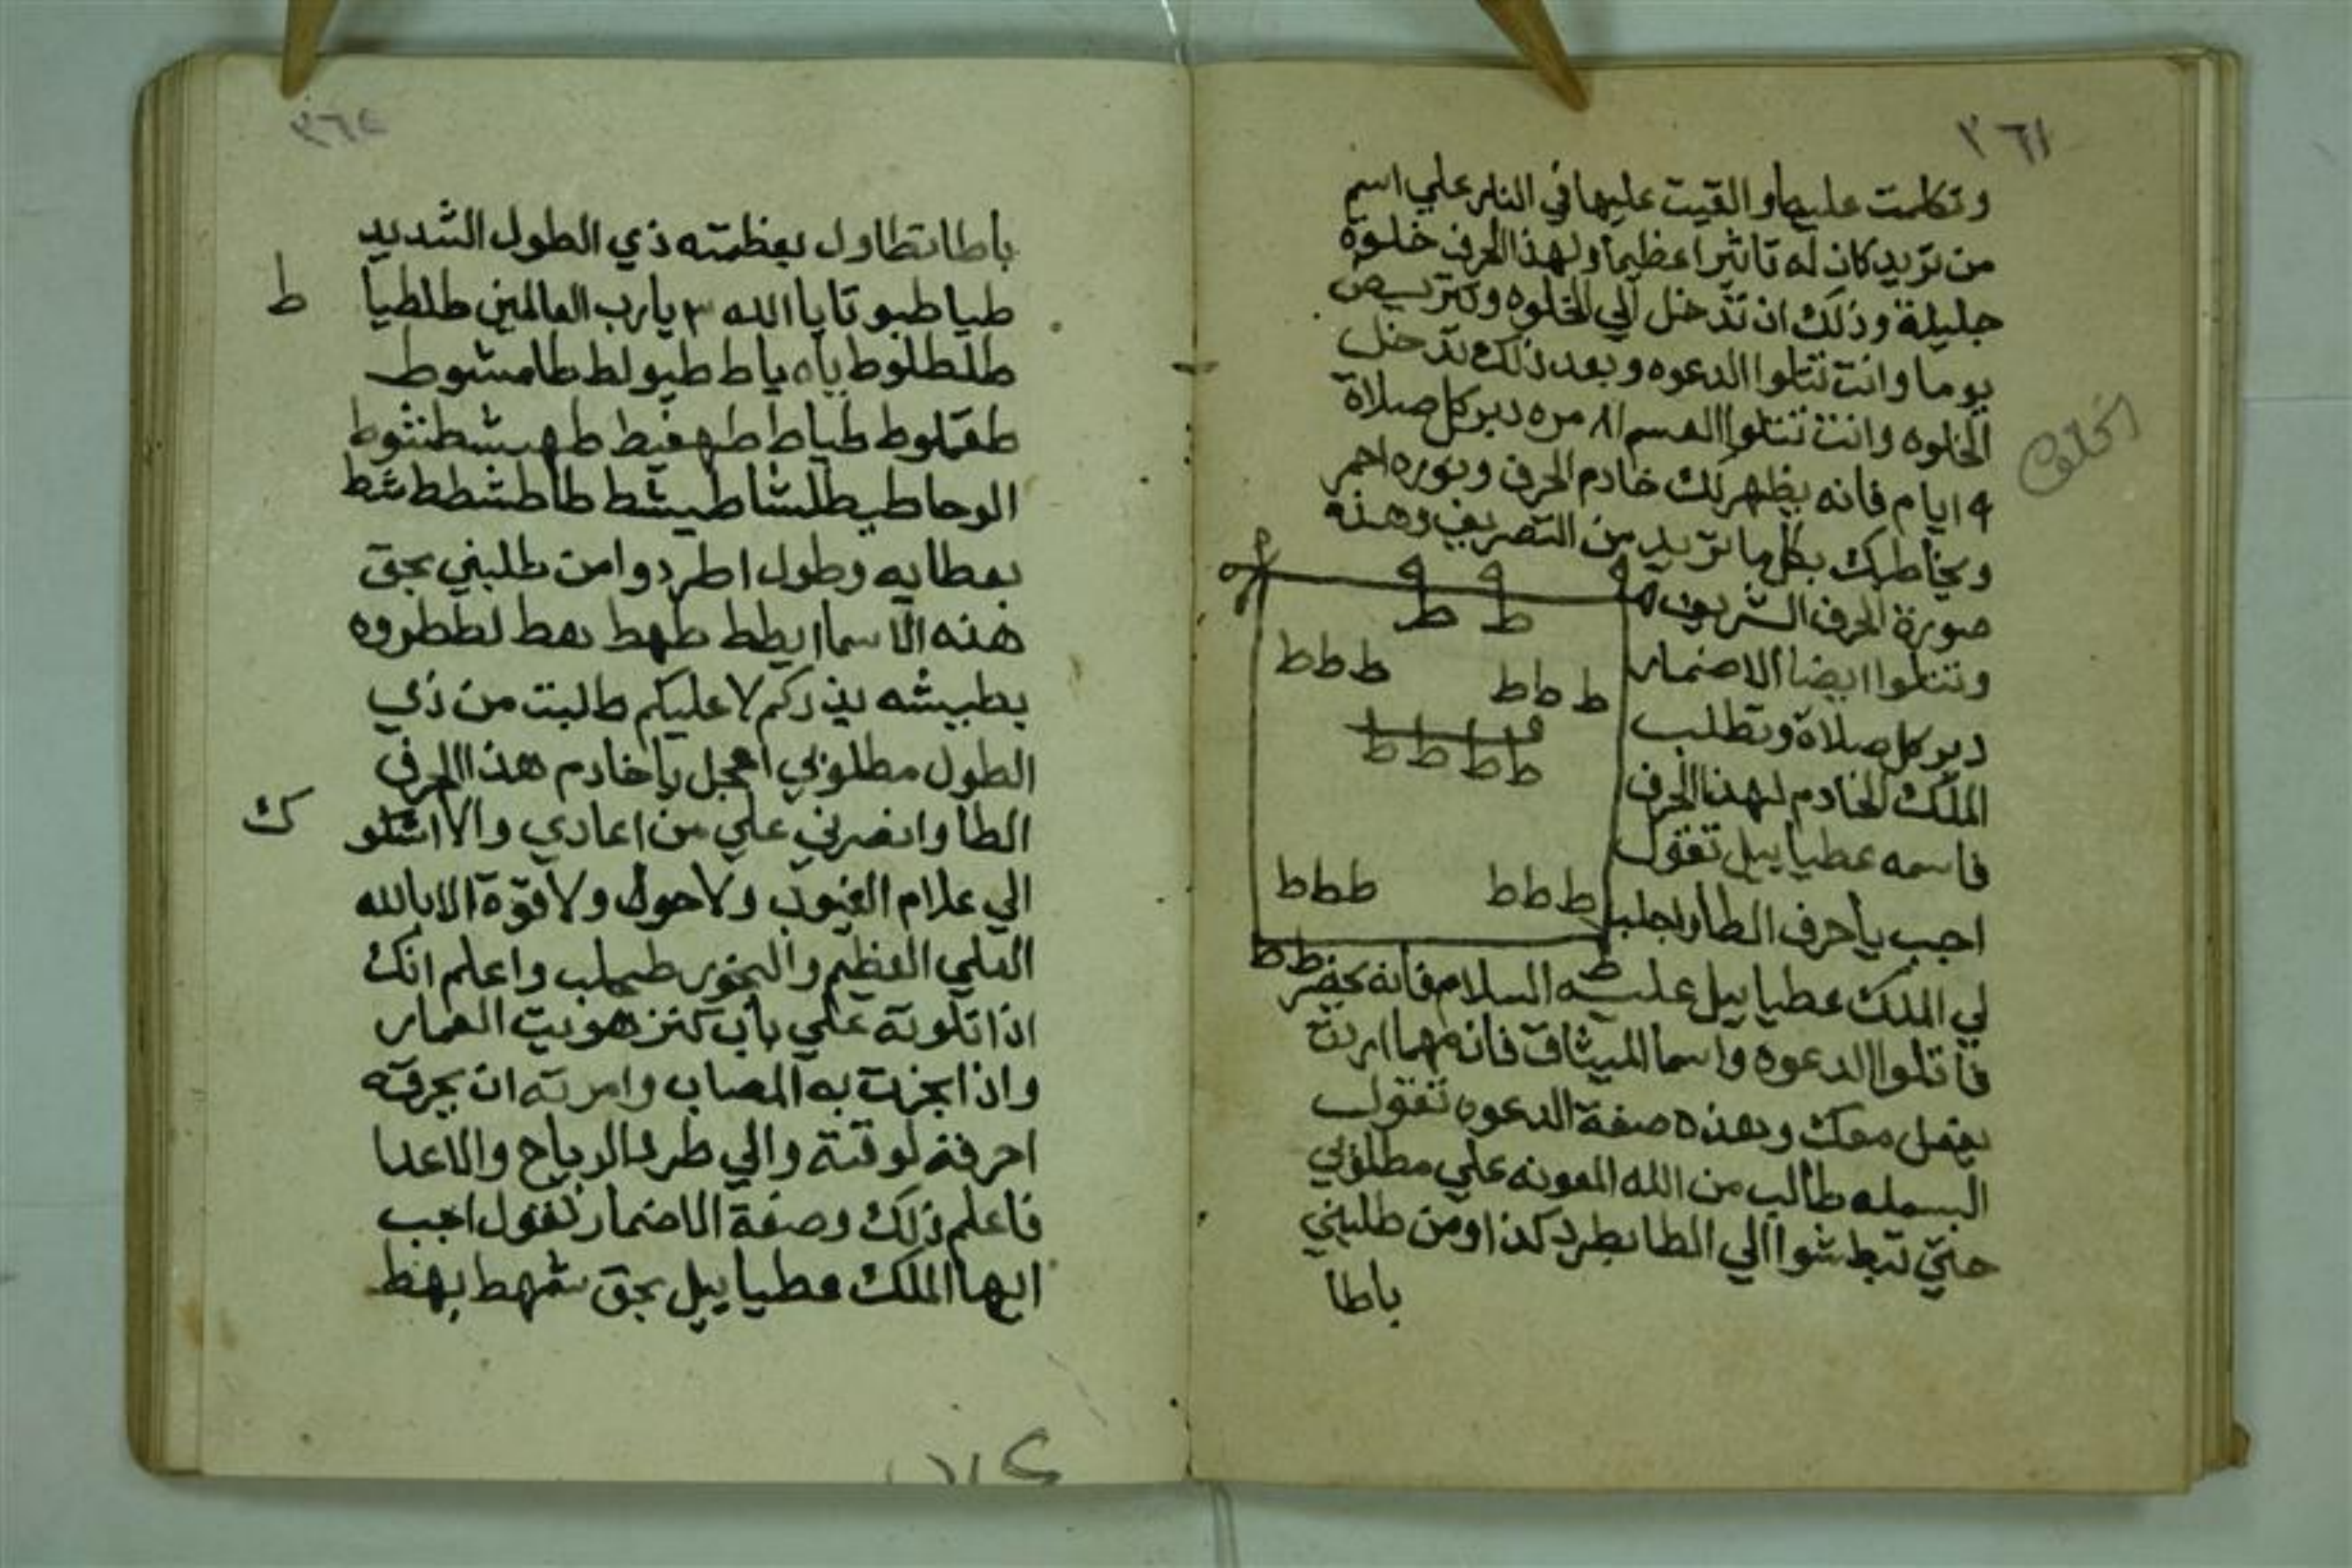 ٣٦١
وتكلمت عليها والقيت عليها في النار علي اسم
من تريد كان له تاثيرا عظيما ولهذا الحرف خلوة
جليلة وذلك ان تدخل الي الخلوه وتتريض
يوما وانت تتلوا الدعوه وبعد ذلك تدخل
الخلوه وانت تتلوا القسم ٨١ مره دبر كل صلاة
٩ ايام فانه يظهر لك خادم الحرف ونوره احمر
ويخاطبك بكل ما تريد من التصريف وهذه
صورة الحرف الشريف
وتتلوا ايضا الاضمار
دبر كل صلاة وتطلب
الملك الخادم لهذا الحرف
فاسمه عطياييل تقول
اجب يا حرف الطا واجلب
لي الملك عطياييل عليه السلام فانه يحضر
فاتلوا الدعوه واسما الميثاق فانه مهما اردت
يفعل معك وهذه صفة الدعوه تقول
البسمله طالب من الله المعونه علي مطلوبي
حتي تبطشوا الي الطا بطرد كذا ومن طلبني
باطا
ط ط
ط ط ط
ط ط ط
ط ط ط ط
ط ط ط
ط ط ط
ط ط ط
الخلوه
باطا تطاول بعظمته ذي الطول الشديد
طيا طبوتا يا الله ٣ يا رب العالمين طلطيا
ط
طلطلوط ياه ياط طيولط طا مشوط
طقلوط طياط طهفيط طهبشطنثوط
الوحا طيطلشا طيشط طاطشطط شط
بعطايه وطول اطردوا من طلبني بحق
هذه الاسما ايطط طهط بعط لططروه
بطبيشه يذركم لا عليكم طالبت من ذي
الطول مطلوبي اعجل يا خادم هذا الحرف
الطا وانصرني علي من اعادي والا اشكو
ك
الي علام الغيوب ولا حول ولا قوة الا بالله
العلي العظيم والبخور طحلب واعلم انك
اذا تلوته علي باب كنز هويت العمار
واذا بخرت به المصاب وامرته ان يحرقه
احرقه لوقته والي طرد الرياح والاعدا
فاعلم ذلك وصفة الاضمار تقول اجب
ايها الملك عطياييل بحق شمهط بهط